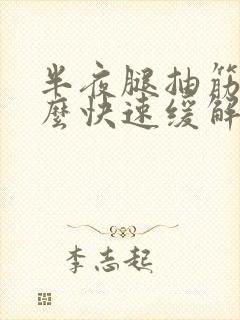 半夜腿抽筋
麼快速缓解
李志起